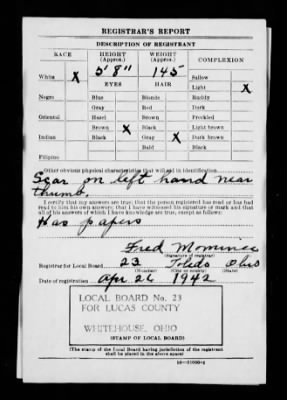 REGISTRAR'S REPORT
DESCRIPTION OF REGISTRANT
RACE HEIGHT (Approx.) WEIGHT (Approx.) COMPLEXION
5' 8" 145
White X EYES HAIR Sallow
Light X
Negro Blue Blonde Ruddy
Gray Red Dark
Oriental Hazel Brown Freckled
Brown X Black Light brown
Indian Black Gray X Dark brown
Bald Black
Filipino
Other obvious physical characteristics that will aid in identification
Scar on left hand near
thumb.
I certify that my answers are true; that the person registered has read or has had
read to him his own answers; that I have witnessed his signature or mark and that
all of his answers of which I have knowledge are true, except as follows:
Has papers
Fred Mominee
(Signature of registrar)
Registrar for Local Board 23 Toledo Ohio
(Number) (City or county) (State)
Date of registration Apr 26 1942
LOCAL BOARD No. 23
FOR LUCAS COUNTY
WHITEHOUSE, OHIO
(STAMP OF LOCAL BOARD)
(The stamp of the Local Board having jurisdiction of the registrant
shall be placed in the above space)